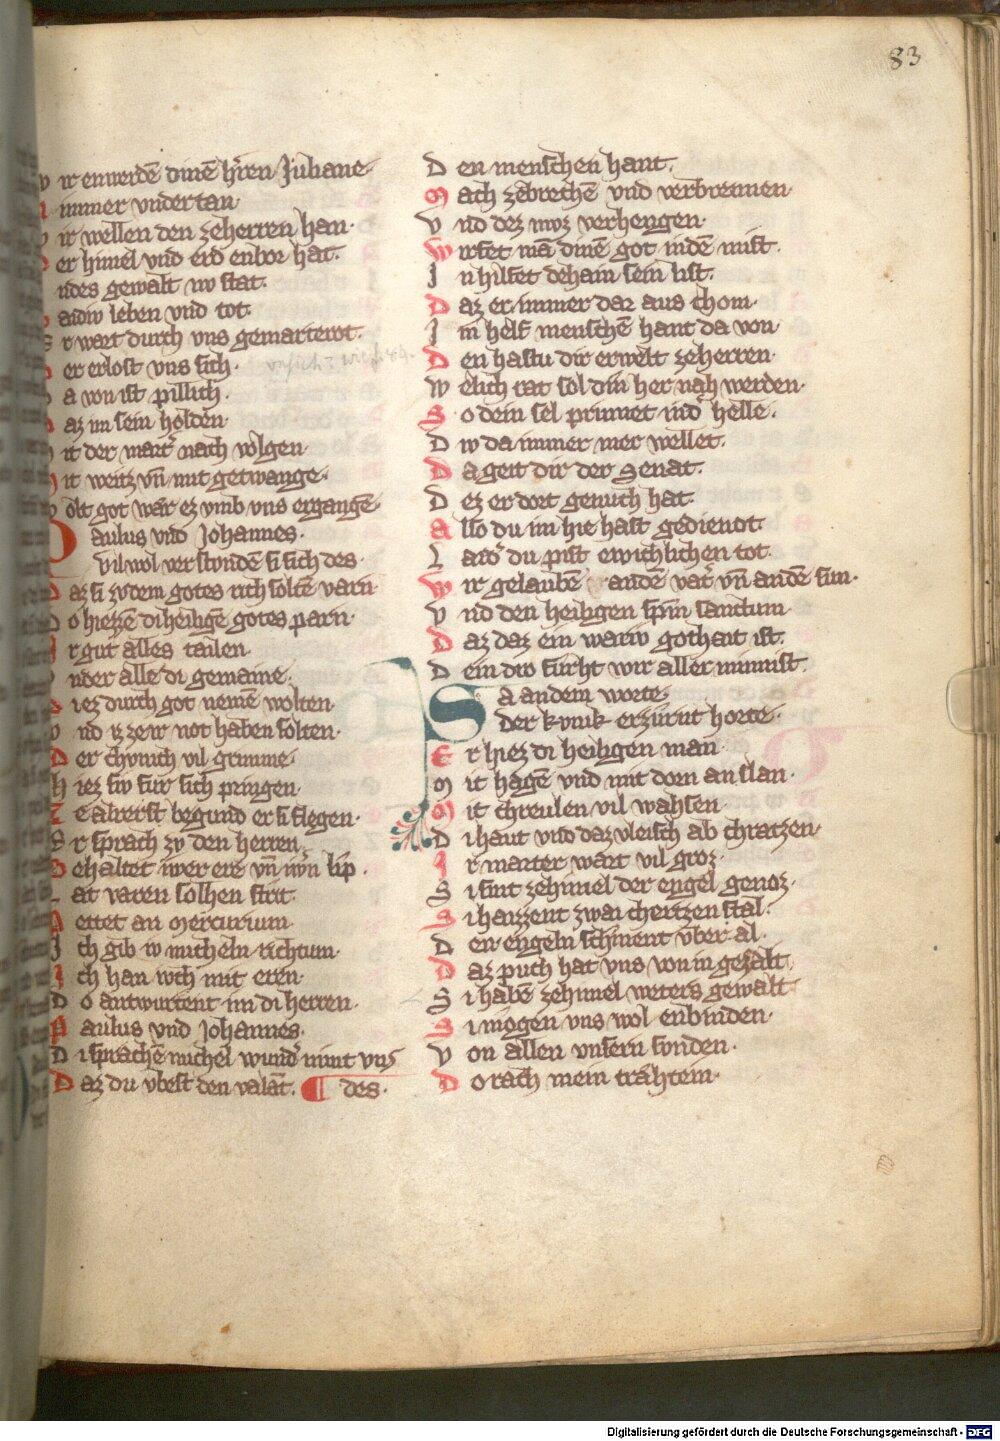 83
W ir enwerdē dinē h'ren Juliane·
N immer vndertan·
W ir wellen den zeherren han·
D er himel vnd erd enbor hat·
ndes gewalt nv stat·
aidiv leben vnd tot·
E r wart durch vns gemarterot·
D er erlost vns sich·
D a von ist pillich·
D az im sein holden·
M it der mart' nach volgen·
M it weitz vn̄ mit getwange·
W olt got wær ez vmb vns ergangē·
P aulus vnd Johannes·
vil wol verstvndē si sich des·
D az si zvdem gotes rich soltē varn·
D o hiezzē di heiligē gotes parn·
I r gut alles tailen·
V nder alle di gemaine·
S iez durch got nemē wolten·
V nd iz zeir not haben solten·
D er chvnich vil grimme·
H iez siv fur sich pringen·
Z e alrerst begund er si flegen·
E r sprach zv den herren·
B ehaltet iwer ere vn̄ iwn lip·
L at varen solhen strit·
B ettet an Mercurium·
I ch gib iv micheln richtum·
I ch han iwch mit eren·
D o antwurtent im di herren·
P aulus vnd Johannes·
D i sprachē michel wund' nimt vns
D az du vbest den valāt· ¶ des·
D en menschen hant·
M ach zebrechē vnd verbrennen·
V nd dez mvz verhengen·
W irfet mā dinē got indē mist·
I n hilfet dehain sein list·
D az er immer dar aus chom·
I m helf menschē hant da von·
D en hastu dir erwelt zeherren·
W elich rat sol din her nah werden·
S o dein sel prinnet ind' helle·
D iv da immer mer wellet·
D a geit dir der Senat·
D ez er dort genuch hat·
A lso du im hie hast gedienot
L aid' du pist ewichlichen tot·
W ir gelaubē andē vat' vn̄ andē sun·
V nd den heiligen spin sanctum·
D az daz ein wariv gothait ist·
D ein div furht wir aller minnist·
S a andem worte·
der kvnik erzurnt horte·
E r hiez di heiligen man·
M it hagē vnd mit dorn an slan·
M it chreulen vil wahsen·
D i haut vnd daz vleisch ab chratzen·
I r marter wart vil groz·
S i sint zehimel der engel genoz·
S i haizzent zwai chertzen stal·
D en engeln schinent vber al·
D az puch hat vns von in gezalt·
S i habē zehimel weters gewalt·
S i mogen vns wol enbinden·
V on allen vnsern svnden·
D o rach mein træhtein·
Digitalisierung gefördert durch die Deutsche Forschungsgemeinschaft - DFG